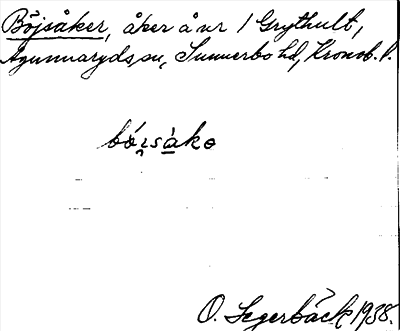 Böjsåker, åker å nr 1 Grythult,
Agunnaryds sn, Sunnerbo hd, Kronob. l.
bó̀i̯sàkɘ
O. Segerbäck 1938.